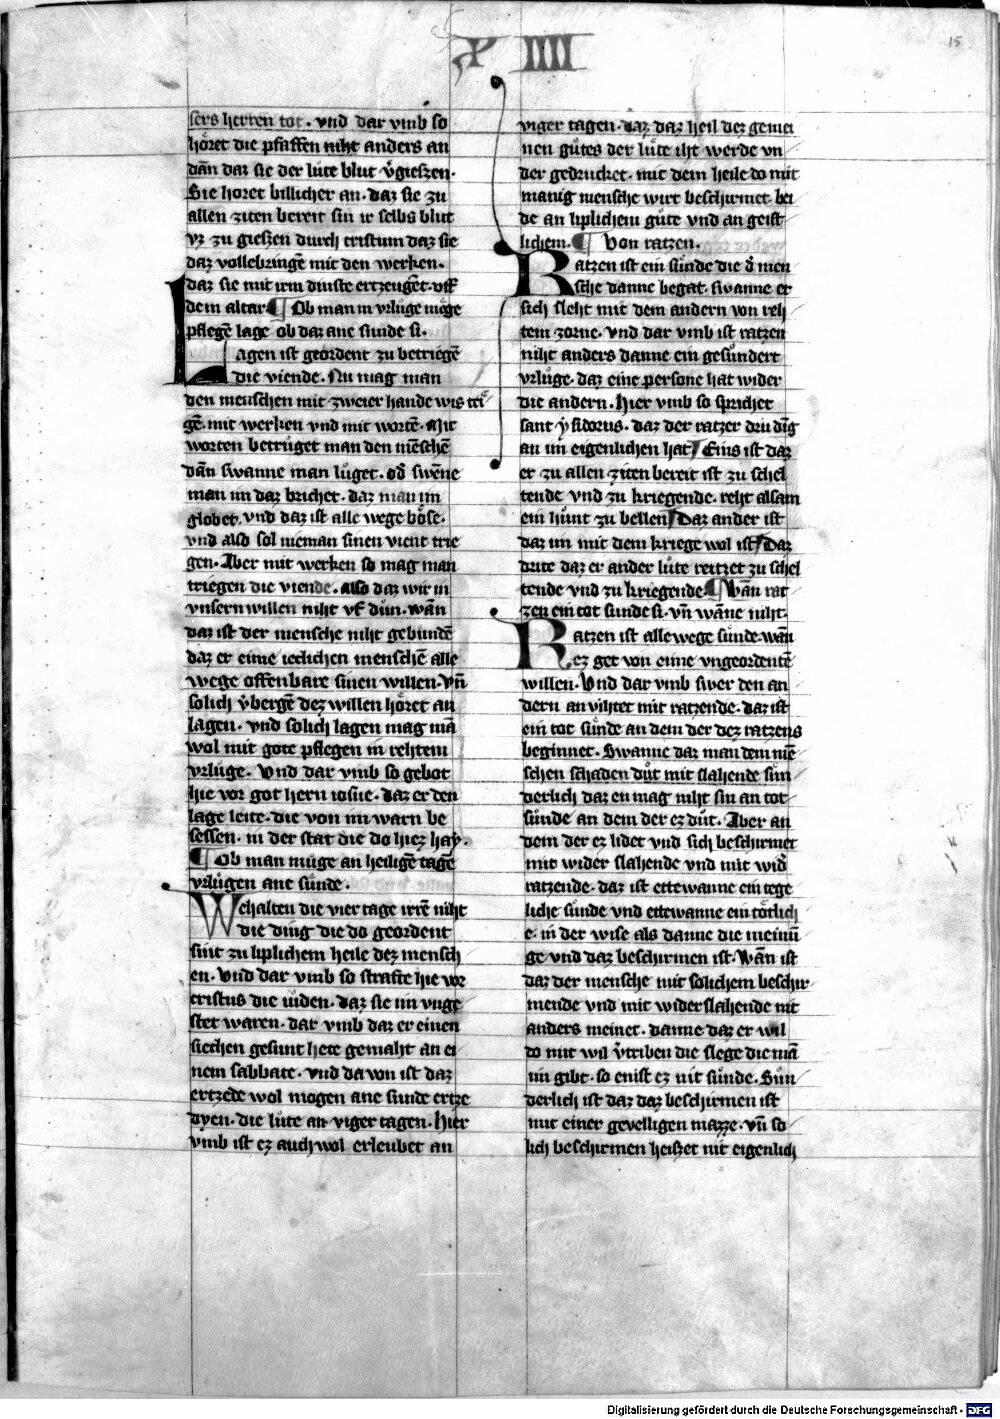 X IIII
15
sers herren tot. vnd dar vmb so
hoͤret die pfaffen niht anders an
dān daz sie der lute blut v̉gieszen.
Sie horet billicher an. daz sie zu
allen ziten bereit sin ir selbs blut
vz zu gieszen durch cristum daz sie
daz vollebringē mit den werken.
daz sie mit irm dinste ertzeugēt. vff
dem altar ¶ Ob man in vrluge muͤge
pflegē lage ob daz ane sunde si.
Lagen ist geordent zu betriegē
die viende. Nu mag man
den menschen mit zweier hande wis trie
gē. mit werken vnd mit wortē. Mit
worten betruͤget man den mēschē
dān swanne man luͤget. od̉ swēne
man im daz brichet. daz man im
globet. vnd daz ist alle wege boͤse.
vnd also sol nieman sinen vient trie
gen. Aber mit werken so mag man
triegen die viende. also daz wir in
vnsern willen niht vf duͤn. wān
daz ist der mensche niht gebundē
daz er eime ieclichen menschē alle
wege offenbare sinen willen. vn̄
solich v̉bergē dez willen hoͤret an
lagen. vnd solich lagen mag mā
wol mit gote pflegen in rehtem
vrluͤge. Vnd dar vmb so gebot
hie vor got hern iosue. daz er den
lage leite. die von im warn be
sessen. in der stat die do hiez hay.
¶ Ob man muͤge an heiligē tagē
vrluͤgen ane suͤnde.
Wehalten die vier tage irrē niht
die ding die do geordent
sint zu liplichem heile dez mensch
en. Vnd dar vmb so strafte hie vor
cristus die iuͤden. daz sie im vnge
stet waren. dar vmb daz er einen
siechen gesunt hete gemaht an ei
nem sabbate. vnd da von ist daz
ertzede wol mogen ane sunde ertze
dyen. die luͤte an viger tagen. Hier
vmb ist ez auch wol erleubet an
viger tagen. daz daz heil dez gemei
nen guͤtes der luͤte iht werde vn
der gedrucket. mit dem heile do mit
manig mensche wirt beschirmet. bei
de an liplichem guͤte vnd an geist
lichem. ¶ Von ratzen.
Ratzen ist ein suͤnde die d̉ men
sche danne begat. swanne er
sich sleht mit dem andern von reh
tem zorne. vnd dar vmb ist ratzen
niht anders danne ein gesuͤndert
vrluͤge. daz eine persone hat wider
die andern. Hier vmb so sprichet
sant ysidorus. daz der ratzer driu dīg
an im eigenlichen hat Eins ist daz
er zu allen ziten bereit ist zu schel
tende vnd zu kriegende. reht alsam
ein huͤnt zu bellen Daz ander ist
daz im mit dem kriege wol ist Daz
drite daz er ander luͤte reitzet zu schel
tende vnd zu kriegende ¶ Wān rat
zen ein tot sunde si. vn̄ wāne niht.
Ratzen ist alle wege suͤnde. wān
ez get von eime vngeordentē
willen. Vnd dar vmb swer den an
dern anvihtet mit ratzende. daz ist
ein tot suͤnde an dem der dez ratzens
beginnet. Swanne daz man dem mē
schen schaden duͤt mit slahende sun
derlich daz en mag niht sin an tot
suͤnde an dem der ez duͤt. Aber an
dem der ez lidet vnd sich beschirmet
mit wider slahende vnd mit wid̉
ratzende. daz ist ettewanne ein tege
liche suͤnde vnd ettewanne ein toͤtlich
e. in der wise als danne die meinū
ge vnd daz beschirmen ist. Wān ist
daz der mensche mit solichem beschir
mende vnd mit wider slahende nit
anders meinet. danne daz er wil
do mit wil v̉triben die slege die mā
im gibt. so enist ez nit suͤnde. Sun
derlich ist daz daz beschirmen ist
mit einer gevelligen mazze. vn̄ so
lich beschirmen heiszet nit eigenlich
Digitalisierung gefördert durch die Deutsche Forschungsgemeinschaft - DFG